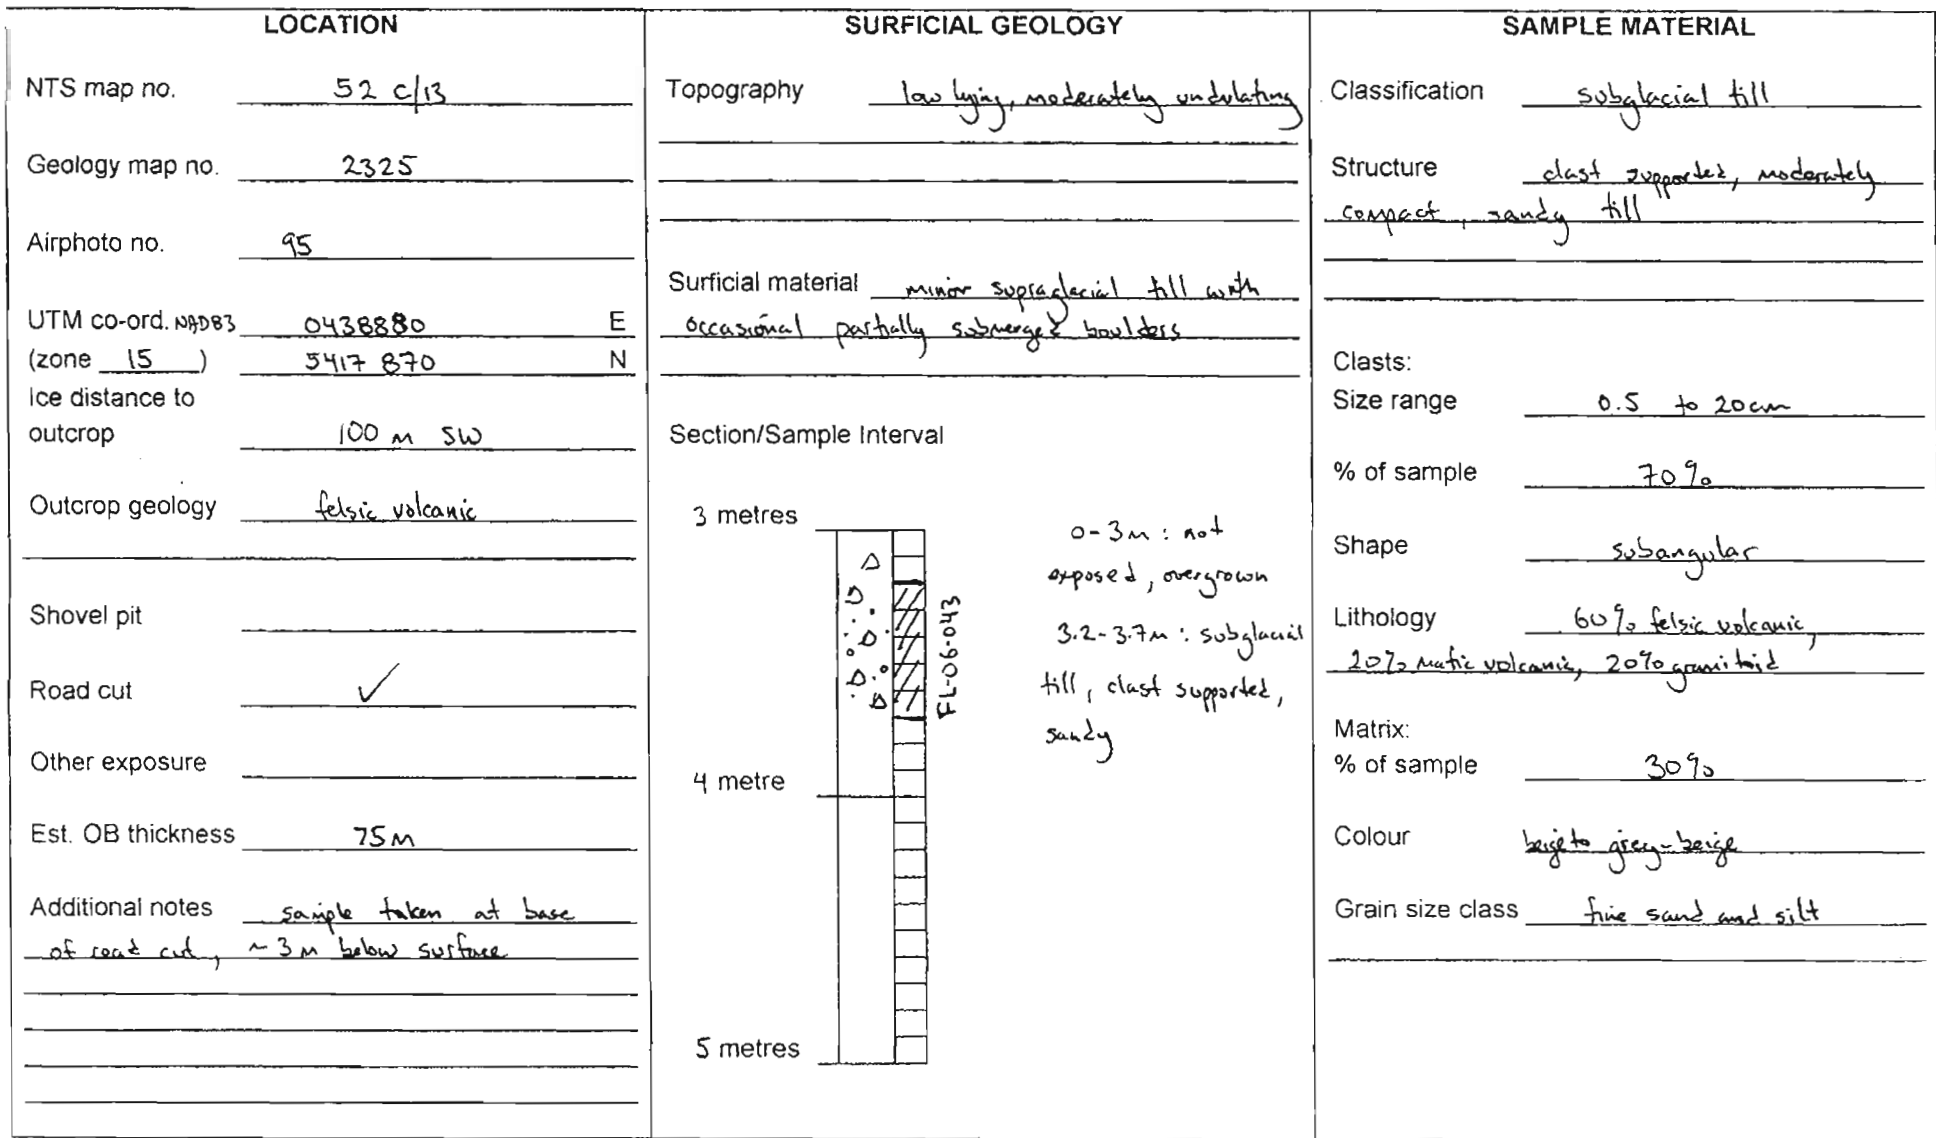 LOCATION
NTS map no. 52 C/13
Geology map no. 2325
Airphoto no. 95
UTM co-ord. NAD83 0438880 E
(zone 15 ) 5417 870 N
Ice distance to
outcrop 100 m SW
Outcrop geology felsic volcanic
Shovel pit
Road cut ✓
Other exposure
Est. OB thickness 75m
Additional notes sample taken at base
of road cut, ~ 3m below surface
SURFICIAL GEOLOGY
Topography low lying, moderately undulating
Surficial material minor supraglacial till with
occasional partially submerged boulders
Section/Sample Interval
3 metres
4 metre
5 metres
FL-06-043
0-3m : not
exposed, overgrown
3.2-3.7m : subglacial
till, clast supported,
sandy
SAMPLE MATERIAL
Classification subglacial till
Structure clast supported, moderately
compact, sandy till
Clasts:
Size range 0.5 to 20cm
% of sample 70%
Shape subangular
Lithology 60% felsic volcanic,
20% mafic volcanic, 20% granitoid
Matrix:
% of sample 30%
Colour beige to grey-beige
Grain size class fine sand and silt